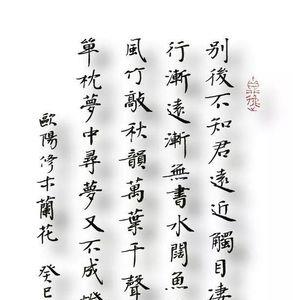 別後不知君遠近觸目凄
行漸遠漸無書水闊魚
風竹敲秋韻萬葉千聲
單枕夢中尋夢又不成
歐陽修木蘭花 癸巳